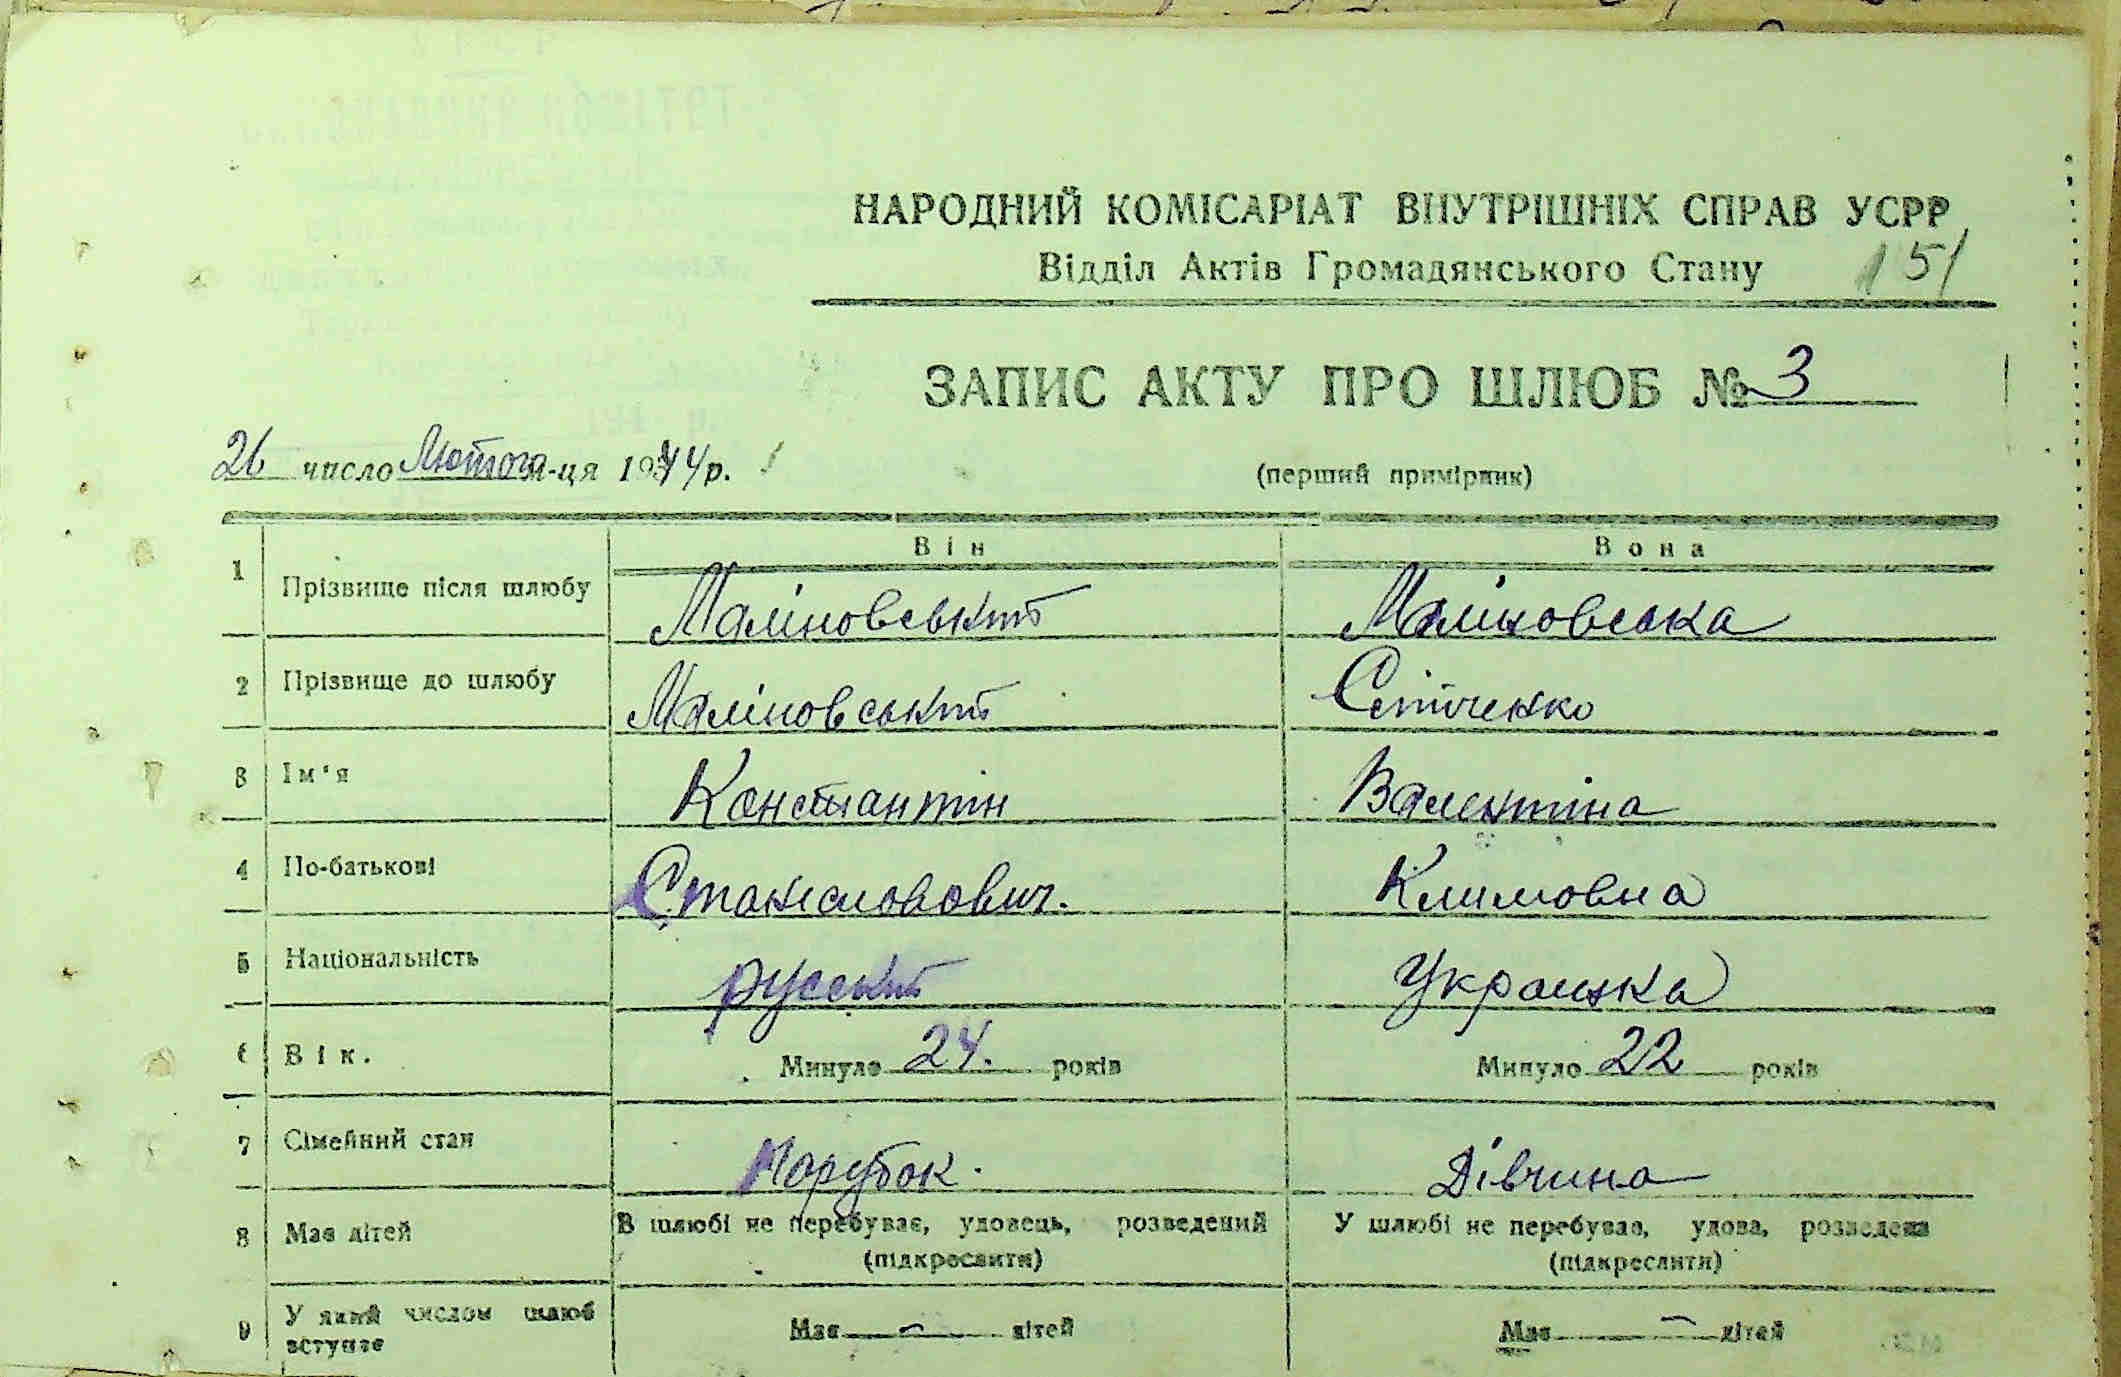 НАРОДНИЙ КОМІСАРІАТ ВНУТРІШНІХ СПРАВ УСРР
Відділ Актів Громадянського Стану 151
ЗАПИС АКТУ ПРО ШЛЮБ № 3
26 число Лютого м-ця 1944 р.
(перший примірник)
Він Вона
1 Прізвище після шлюбу Маліновський Маліновська
2 Прізвище до шлюбу Маліновський
3 Ім'я Константін Валентіна
4 По-батькові Станіславович. Климовна
5 Національність русский Украинка
6 Вік. Минуло 24. років Минуло 22 років
7 Сімейний стан Парубок. Дівчина
8 Має дітей В шлюбі не перебуває, удовець, розведений У шлюбі не перебуває, удова, розведена
(підкреслити) (підкреслити)
9 У який числом шлюб вступає Має — дітей Має — дітей